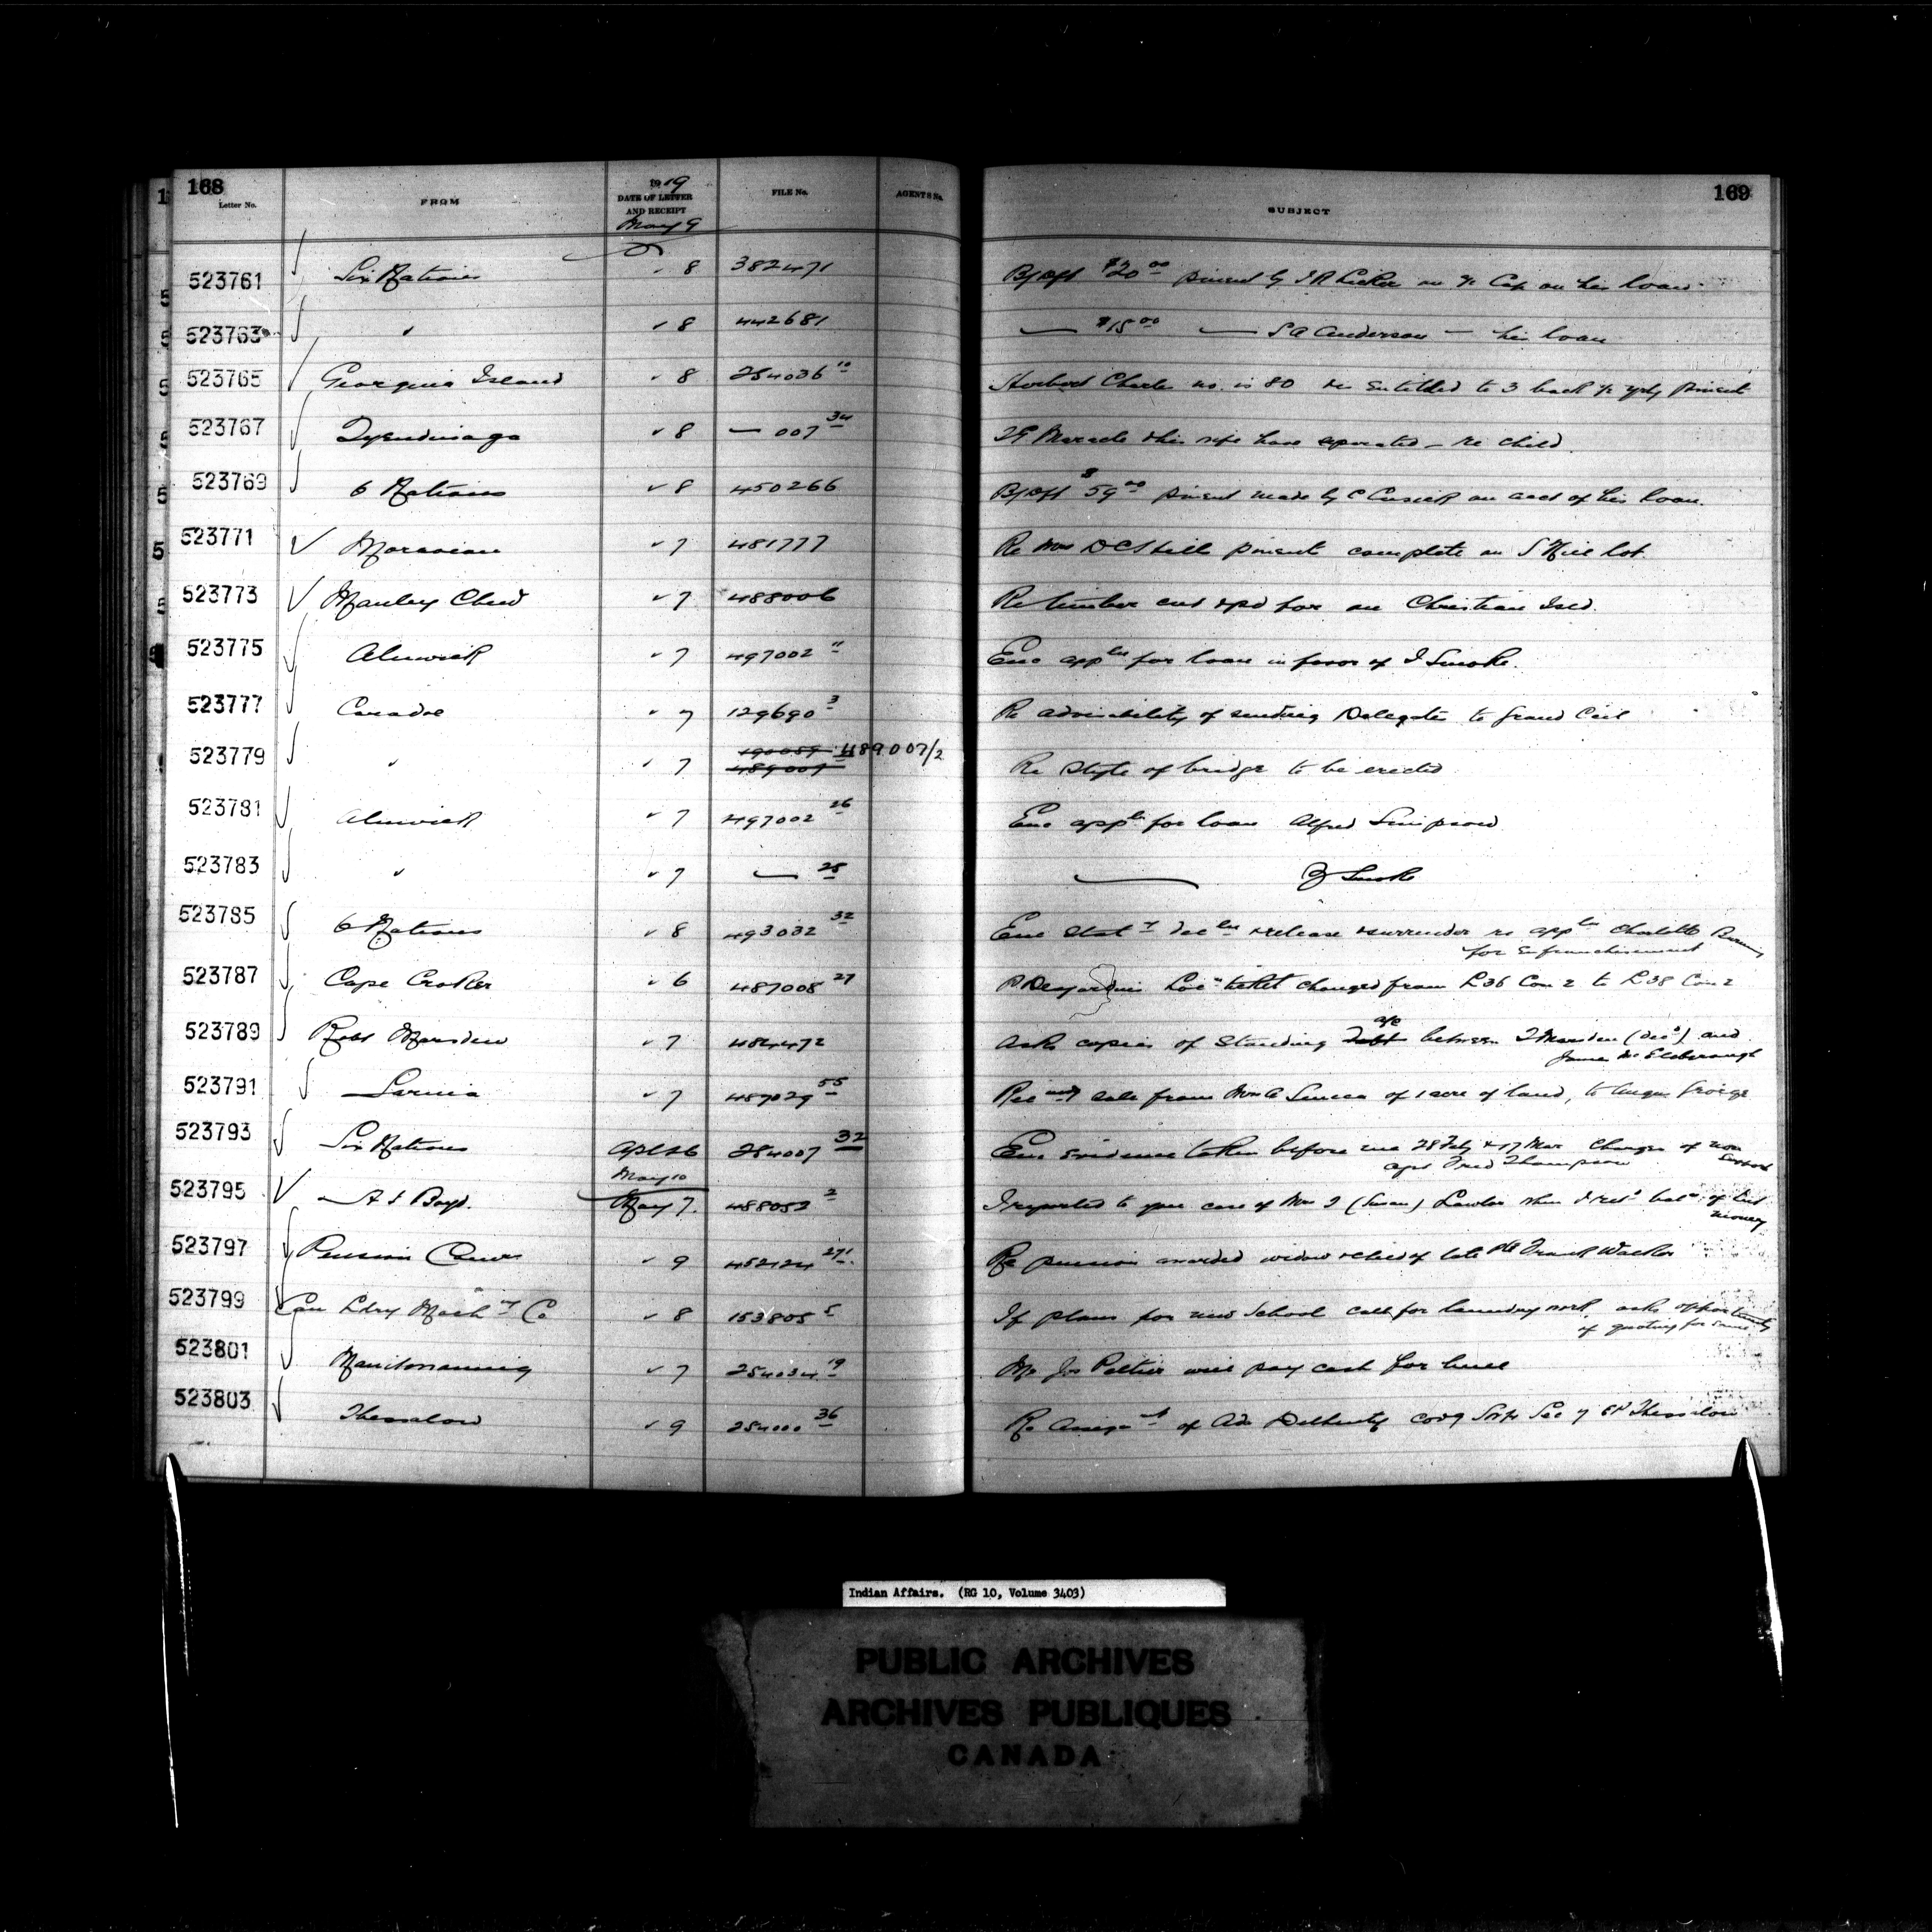 168
169
Letter No.
FROM
1919
DATE OF LETTER
AND RECEIPT
May 9
FILE No.
AGENTS No.
SUBJECT
523761 Six Nations " 8 382471 By Dft $20.00 pment by on his loan
523763 " " 8 442681 — $15.00 — S A Anderson — his loan
523765 Georgina Island " 8 254036 10 Herbert Charles no. is 80 entitled to 3 back
523767 Tyendinaga " 8 — 007 34 Maracle & his wife have separated — re child.
523769 6 Nations " 8 450266 By Dft $59.00 pment made by C Cusick on acct of his loan.
523771 Moravian " 7 481777 Re Mrs D C Hill pment complete on S Hill lot.
523773 Manley Chew " 7 488006 Re timber cut & pd for on Christian Isld.
523775 Alnwick " 7 497002 11 Enc appln for loan in favor of I Smoke.
523777 Caradoc " 7 129690 3 Re advisability of sending Delegates to Grand Ccil
523779 " " 7 190059 489007 489007/2 Re Style of bridge to be erected
523781 Alnwick " 7 497002 26 Enc appln for loan Alfred Simpson
523783 " " 7 — 25 — Smoke
523785 6 Nations " 8 493032 32 Enc Staty decln release & surrender re appln Charlotte
for enfranchisement
523787 Cape Croker " 6 487008 27 P Desjardins Locn ticket changed from L36 Con 2 to L38 Con 2
523789 Robt Marsden " 7 484472 Asks copies of Standing Debt a/c between T Marsden (decd) and
James Mc
523791 Sarnia " 7 487029 55 sale from Mrs Seneca of 1 acre of land, to Angus George
523793 Six Nations Apl 26 254007 32 Enc evidence taken before me 28 Feby & 17 Mar Charges of non support
agst Fred Thompson
May 10
523795 A S Boyd. May 7. 488052 2 I reported to you case of Mrs J (Susan) Lawlor when I retd baln of
money
523797 Pension Comrs " 9 452124 271 Re pension awarded widow & child of late Pte Frank Walker
523799 Can Ldry Machny Co " 8 153805 5 If plans for new School call for laundry work asks opportunity
of quoting for same
523801 Manitowaning " 7 254034 19 Mr Jos Peltier will pay cash for bull
523803 Thessalon " 9 254000 36 Re Assignmt of Adm covg Sec 7 Thessalon
Indian Affairs. (RG 10, Volume 3403)
PUBLIC ARCHIVES
ARCHIVES PUBLIQUES
CANADA